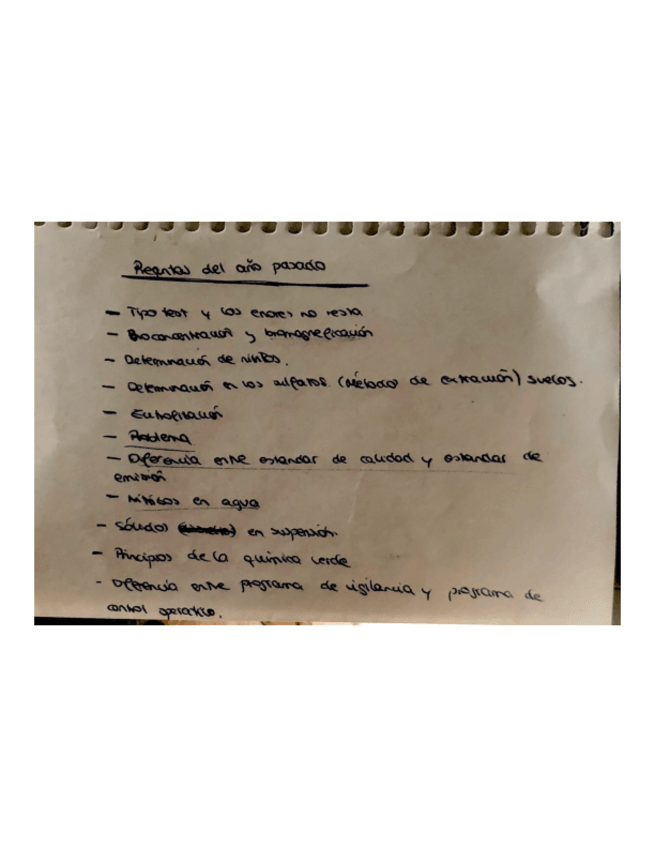 Preguntas del año pasado
- Tipo test y los errores no resta
- Bioconcentración y biomagnificación
- Determinación de nitritos.
- Determinación en los sulfatos. (Métodos de extracción) suelos.
- Eutrofización
- Problema
- Diferencia entre estandar de calidad y estandar de
emisión
- Nitritos en agua
- Sólidos en suspensión.
- Principios de la química verde
- Diferencia entre programa de vigilancia y programa de
control operativo.